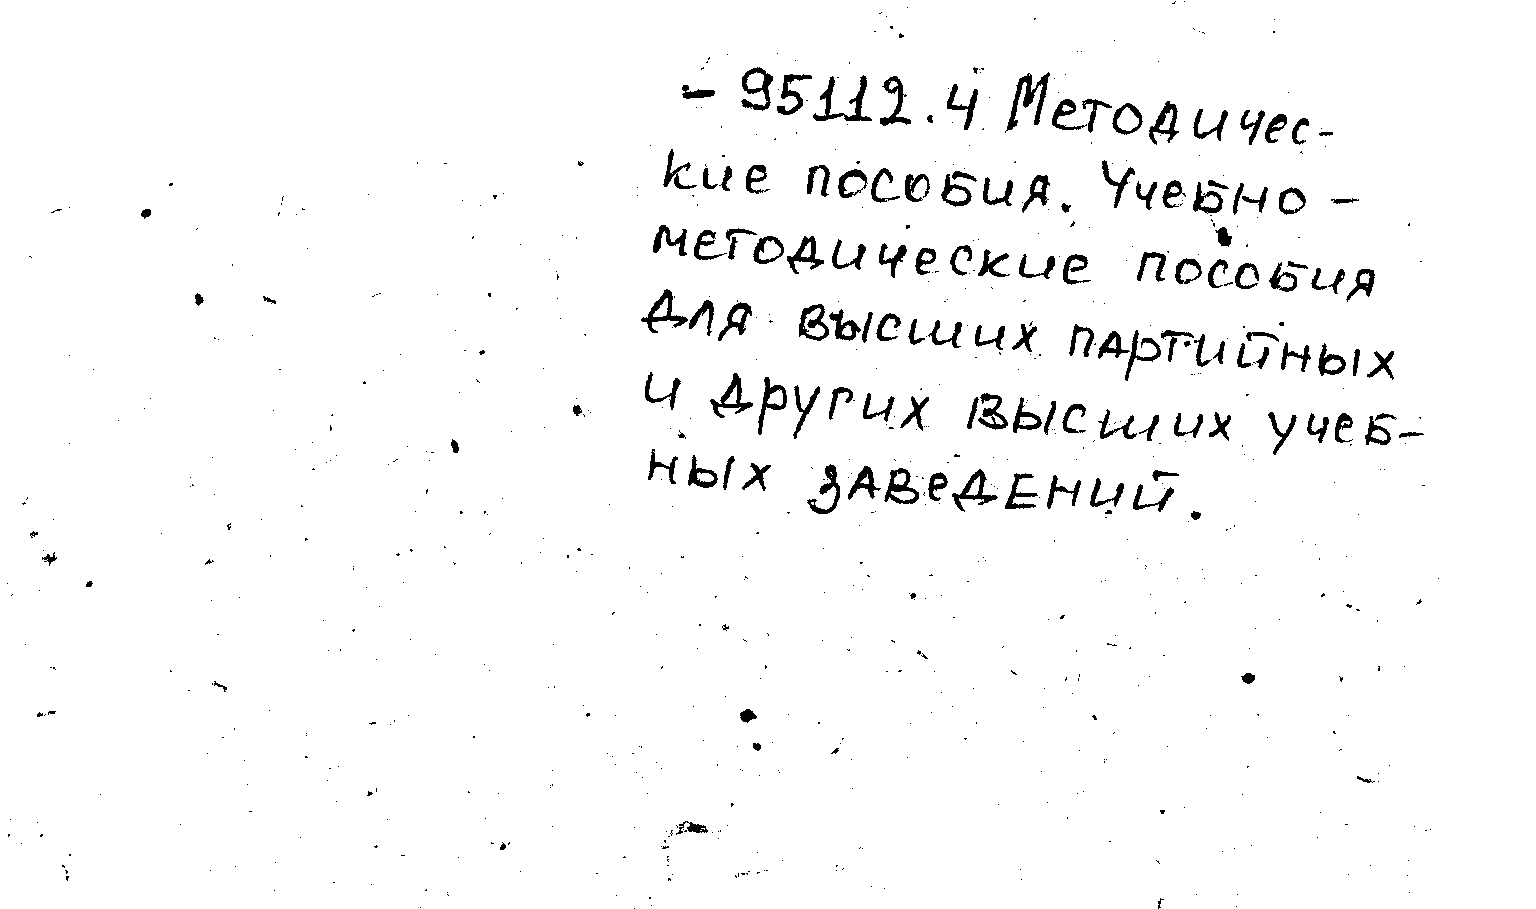 - 95112.4 Методичес-
кие пособия. Учебно-
методические пособия
для высших партийных
и других высших учеб-
ных заведений.